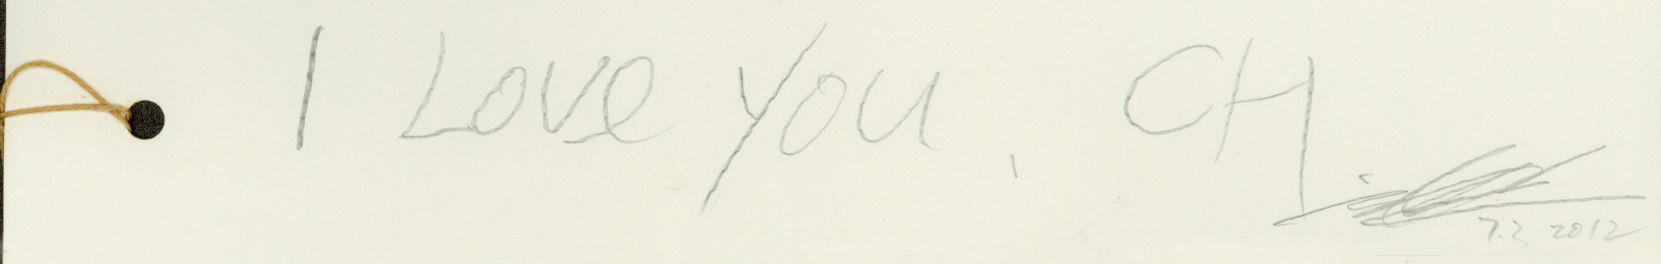 I Love you, CH
7.3 2012